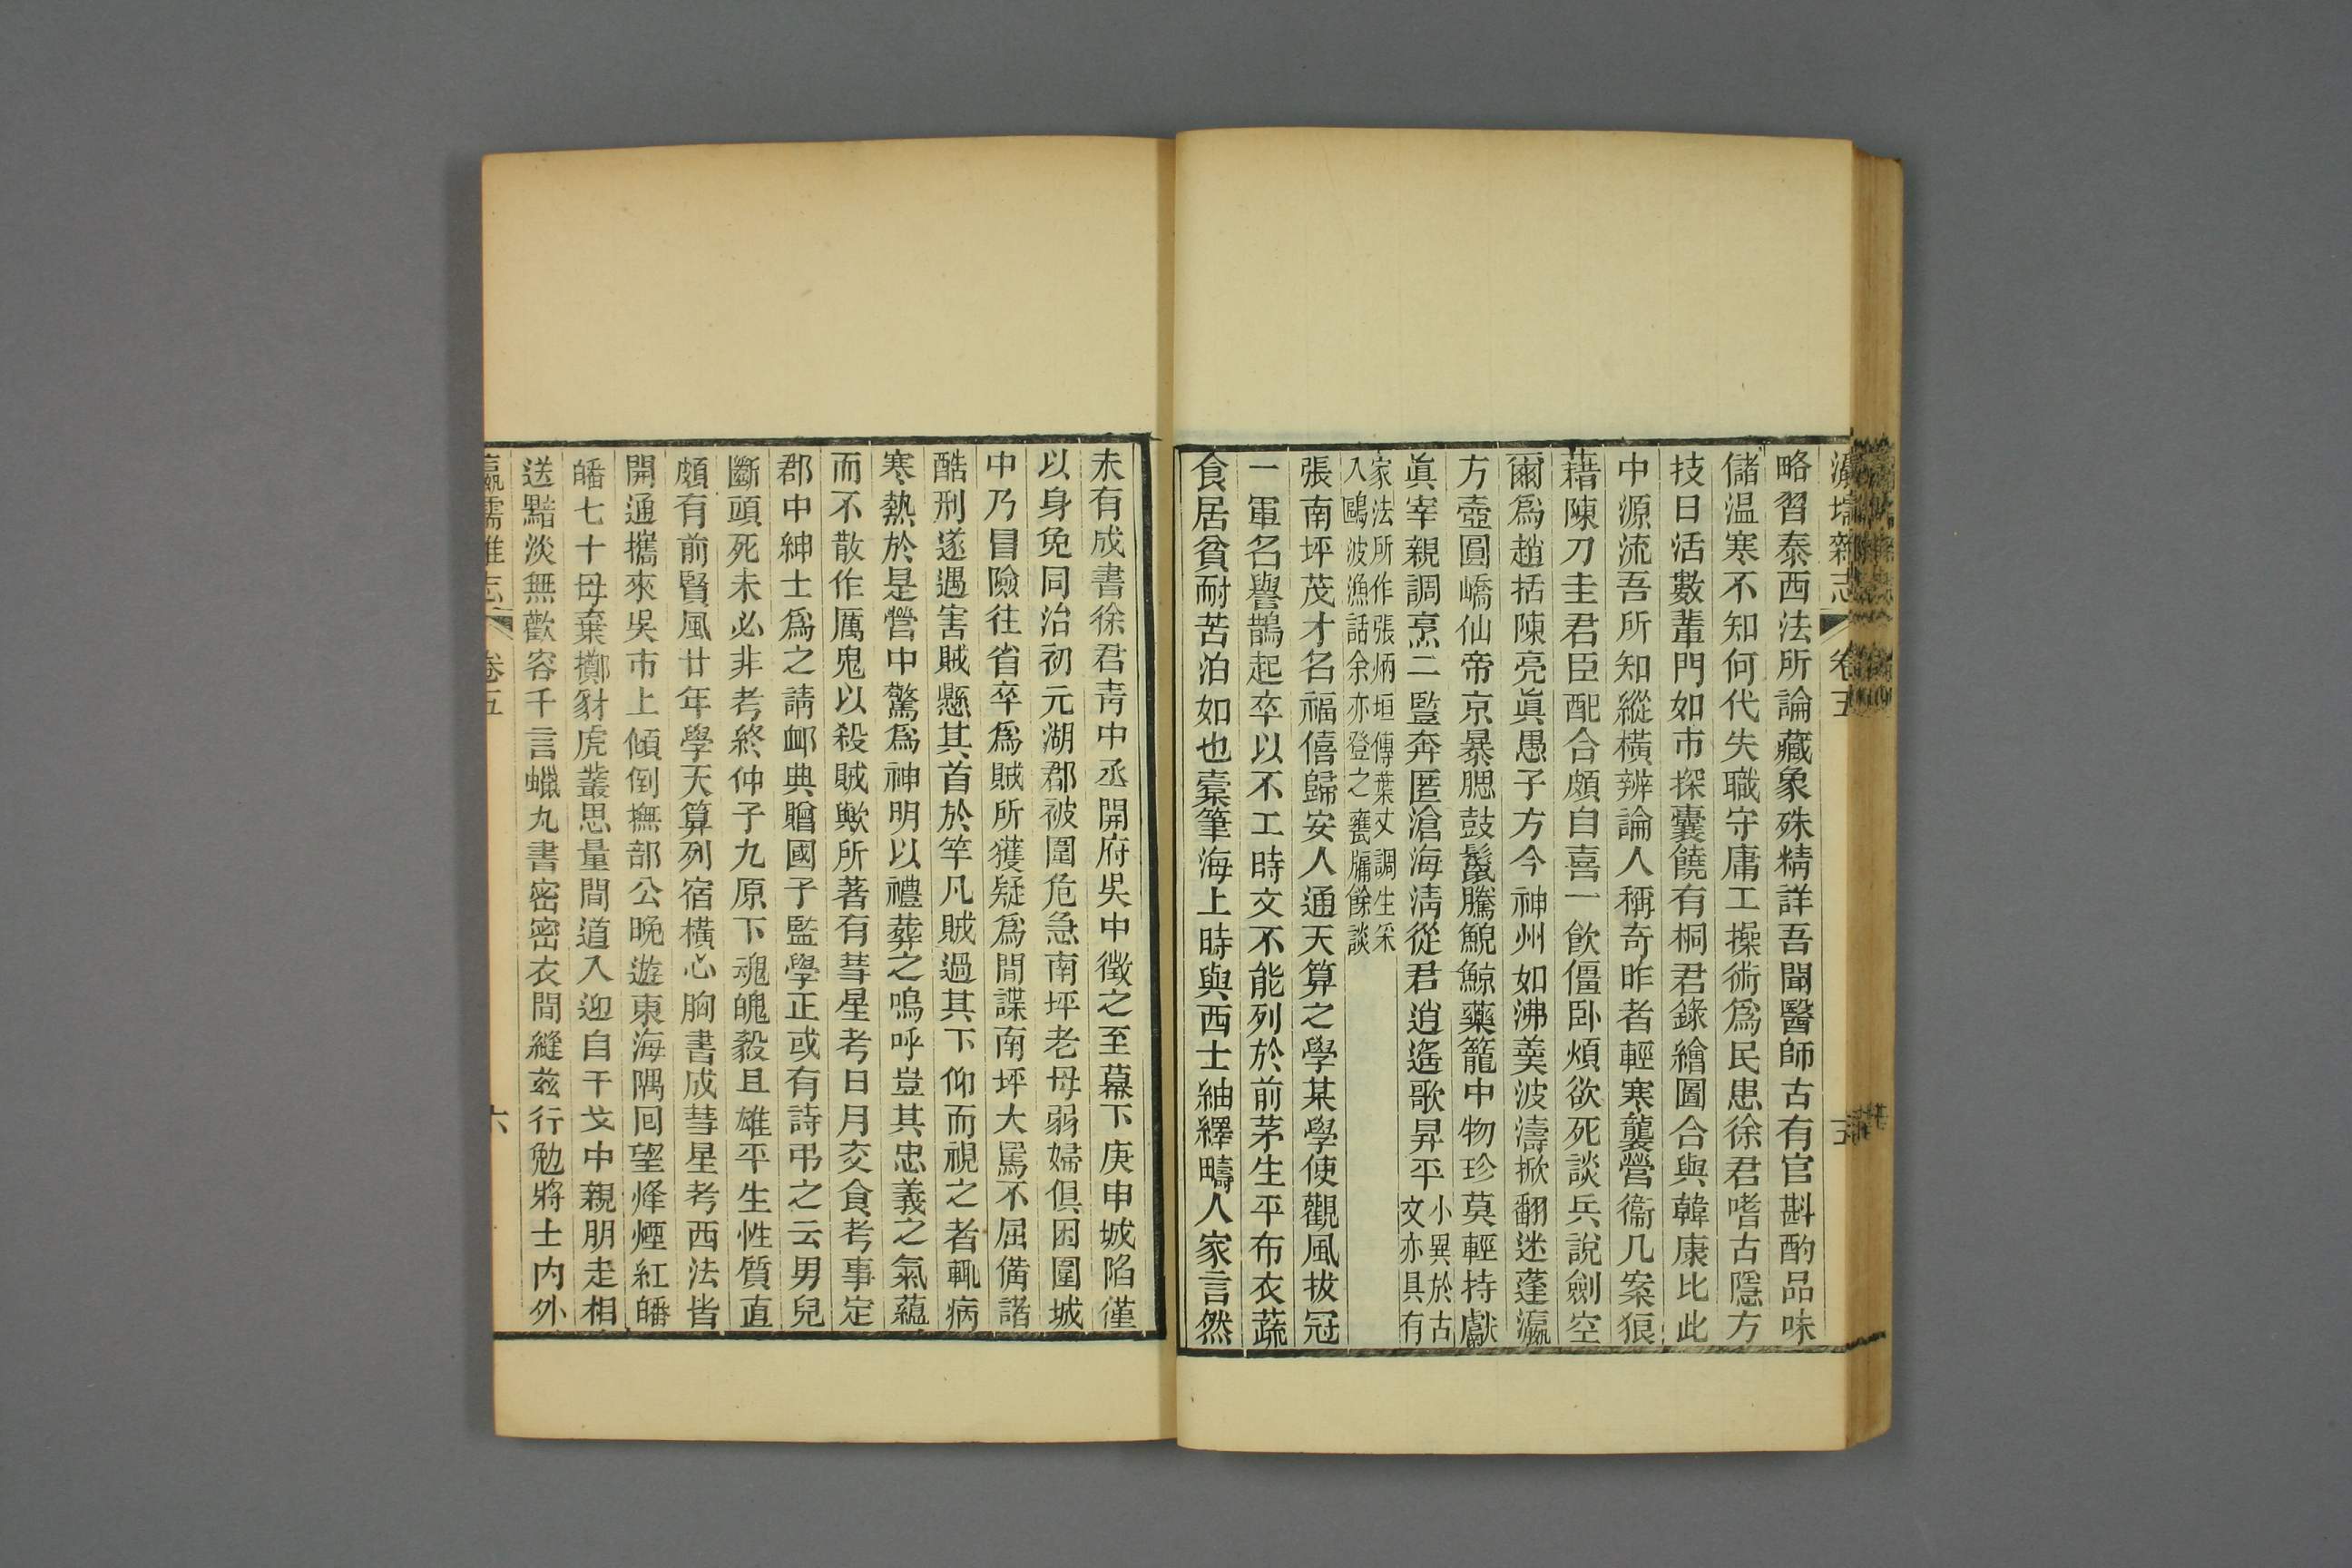 瀛壖雜志 卷五 五
略習泰西法所論藏象殊精詳吾聞醫師古有官斟酌品味
儲温寒不知何代失職守庸工操術爲民患徐君嗜古隱方
技日活數輩門如市探囊饒有桐君錄繪圖合與韓康比此
中源流吾所知縱橫辨論人稱奇昨者輕寒襲營衞几案狼
藉陳刀圭君臣配合頗自喜一飮僵卧煩欲死談兵說劍空
爾爲趙括陳亮眞愚子方今神州如沸羹波濤掀翻迷蓬瀛
方壺圓嶠仙帝京暴腮鼓鬣騰鯢鯨藥籠中物珍莫輕持獻
眞宰親調烹二豎奔匿滄海淸從君逍遙歌昇平小異於古文亦具有
家法所作張炳垣傳葉丈調生采入鷗波漁話余亦登之甕牖餘談
張南坪茂才名福僖歸安人通天算之學某學使觀風拔冠
一軍名譽鵲起卒以不工時文不能列於前茅生平布衣蔬
食居貧耐苦泊如也橐筆海上時與西士紬繹疇人家言然
未有成書徐君靑中丞開府吳中徵之至幕下庚申城陷僅
以身免同治初元湖郡被圍危急南坪老母弱婦俱困圍城
中乃冒險往省卒爲賊所獲疑爲間諜南坪大罵不屈備諸
酷刑遂遇害賊懸其首於竿凡賊過其下仰而視之者輒病
寒熱於是營中驚爲神明以禮葬之嗚呼豈其忠義之氣蘊
而不散作厲鬼以殺賊歟所著有彗星考日月交食考事定
郡中紳士爲之請卹典贈國子監學正或有詩弔之云男兒
斷頭死未必非考終仲子九原下魂魄毅且雄平生性質直
頗有前賢風廿年學天算列宿橫心胸書成彗星考西法皆
開通攜來吳市上傾倒撫部公晩遊東海隅囘望烽煙紅皤
皤七十母棄擲豺虎叢思量間道入迎自干戈中親朋走相
送黯淡無歡容千言蠟丸書密密衣間縫兹行勉將士內外
瀛壖雜志 卷五 六